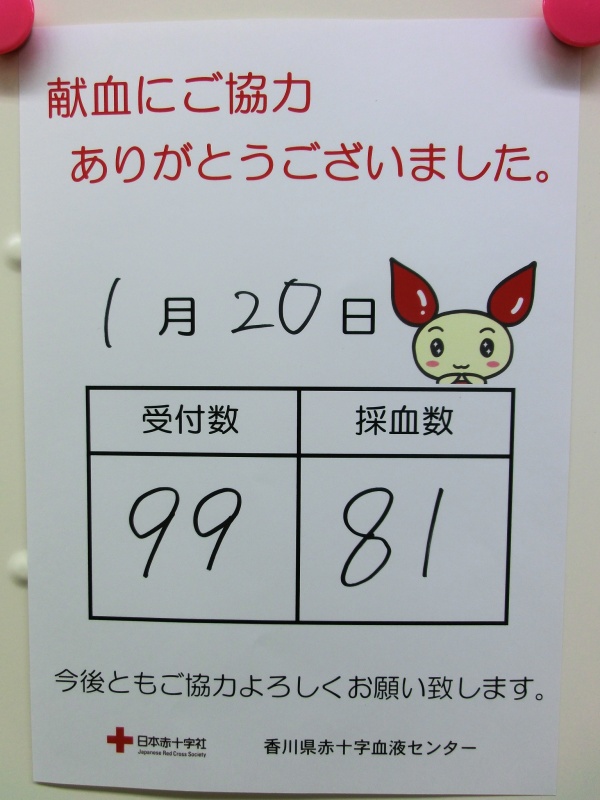 献血にご協力
ありがとうございました。
1月20日
受付数 採血数
99 81
今後ともご協力よろしくお願い致します。
日本赤十字社
Japanese Red Cross Society
香川県赤十字血液センター